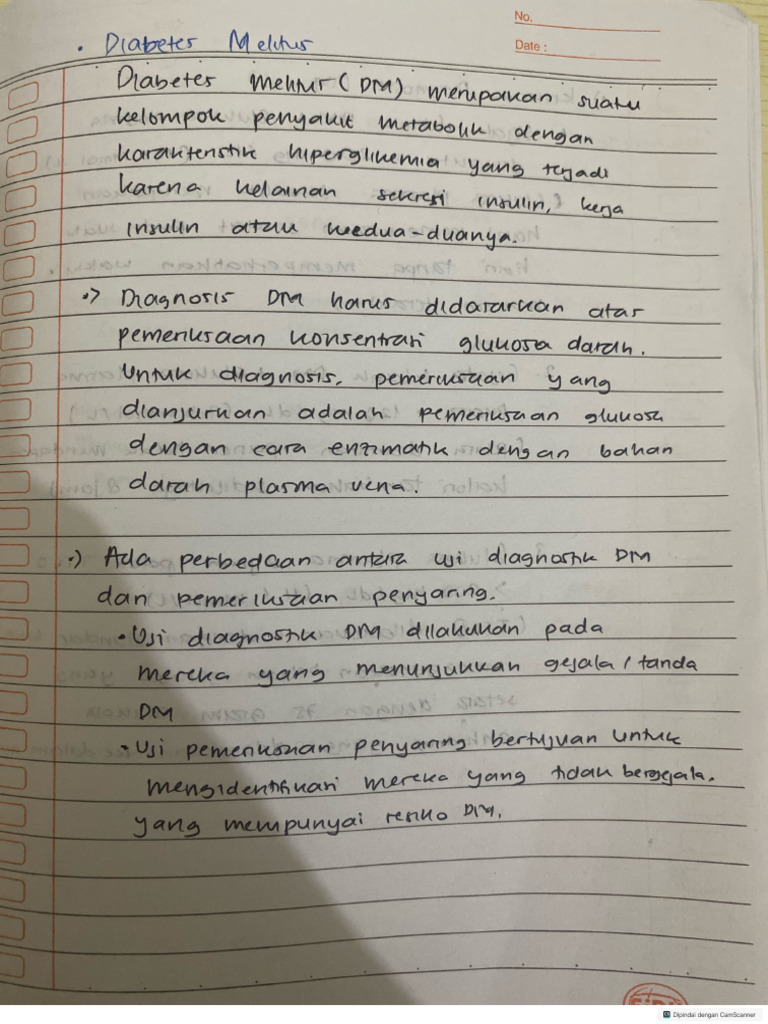 No.
Date :
• Diabetes Melitus
Diabetes Melitus (DM) merupakan suatu
kelompok penyakit metabolik dengan
karakteristik hiperglikemia yang terjadi
karena kelainan sekresi insulin, kerja
insulin atau kedua-duanya.
•> Diagnosis DM harus didasarkan atas
pemeriksaan konsentrasi glukosa darah.
Untuk diagnosis, pemeriksaan yang
dianjurkan adalah pemeriksaan glukosa
dengan cara enzimatik dengan bahan
darah plasma vena.
•) Ada perbedaan antara uji diagnostik DM
dan pemeriksaan penyaring.
• Uji diagnostik DM dilakukan pada
mereka yang menunjukkan gejala / tanda
DM
• Uji pemeriksaan penyaring bertujuan untuk
mengidentifikasi mereka yang tidak bergejala,
yang mempunyai resiko DM.
Dipindai dengan CamScanner